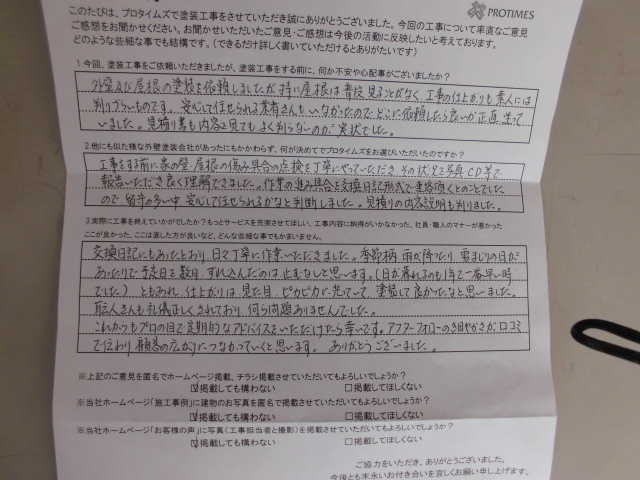 PROTIMES
このたびは、プロタイムズで塗装工事をさせていただき誠にありがとうございました。今回の工事について率直なご意見
ご感想をお聞かせください。お聞かせいただいたご意見・ご感想は今後の活動に反映したいと考えております。
どのような些細な事でも結構です。（できるだけ詳しく書いていただけるとありがたいです）
1.今回、塗装工事をご依頼いただきましたが、塗装工事をする前に、何か不安や心配事がございましたか？
外壁及び屋根の塗装を依頼しましたが、特に屋根は普段見ることがなく、工事の仕上がりも素人には
判りづらいものです。安心して任せられる業者さんもいなかったのでどこに依頼したら良いか正直迷って
いました。見積り書も内容を見てもよく判らないのが実状でした。
2.他にも似た様な外壁塗装会社があったにもかかわらず、何が決めてでプロタイムズをお選びいただいたのですか？
工事をする前に家の壁・屋根の傷み具合の点検も丁寧にやっていただき、その状況を写真、CD等で
報告いただき良く理解できました。作業の進み具合も交換日記形式で連絡頂くとのことでした
ので留守の多い中安心して任せられるかなと判断しました。見積りの内容説明も判りました。
3.実際に工事を終えていかがでしたか？もっとサービスを充実させてほしい、工事内容に納得がいかなかった、社員・職人のマナーが悪かった
ここが良かった、ここは直した方が良いなど、どんな些細な事でもかまいません。
交換日記にもあったとおり、日々丁寧に作業いただきました。季節柄 雨が降ったり、雪まじりの日が
あったりで予定日は数日ずれ込んだのは止むなしと思います。（日が暮れるのも1年で一番早い時
でした）ともあれ、仕上がりは見た目、ピカピカに光っていて、塗装して良かったなと思いました。
職人さんも礼儀正しくされており、何ら問題ありませんでした。
これからもプロの目で定期的なアドバイスをいただけたら幸いです。アフターフォローのきめ細やかさが口コミ
で伝わり顧客の広がりにつながっていくと思います。ありがとうございました。
※上記のご意見を匿名でホームページ掲載、チラシ掲載させていただいてもよろしいでしょうか？
☑掲載しても構わない □掲載してほしくない
※当社ホームページ「施工事例」に建物のお写真を匿名で掲載させていただいてもよろしいでしょうか？
☑掲載しても構わない □掲載してほしくない
※当社ホームページ「お客様の声」に写真（工事担当者と撮影）を掲載させていただいてもよろしいでしょうか？
☑掲載しても構わない □掲載してほしくない
ご協力をいただき、ありがとうございました。
今後とも末永いお付き合いを宜しくお願い申し上げます。